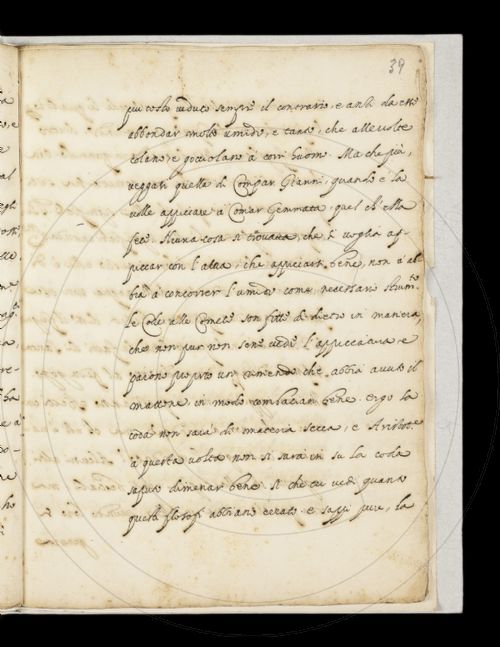 39
più tosto veduto sempre il contrario, e anzi da esso
abbondar molto umido, e tanto, che alle volte
colano, e gocciolano a con huom. Ma che più,
veggasi quella di Compar Gianni, quando e la
volle appiccare a Comar Gemmata, quel ch'ella
fece. Niuna cosa si truova, che s' voglia ap-
piccar con l'altra, che appiccarsi bene, non v' ab
bia à concorrer l'umido come necessario strum.to
Le Code alle Comete son fitte di dietro in maniera,
che non pur non se ne vede l'appiccatura, e
paiono proprio un rimendo che abbia avuto il
mattone in modo combaciano bene. ergo la
coda non sarà di materia secca, e Aristotele
à questa volta non si sarà in su la coda
saputo dimenar bene. Si che tu vedi quanto
questi filosofi abbiano errato. e sappi pure, la